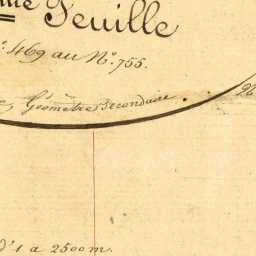 Feuille
469 au N.° 755.
Géomètre Secondaire.
1 a 2500 m.